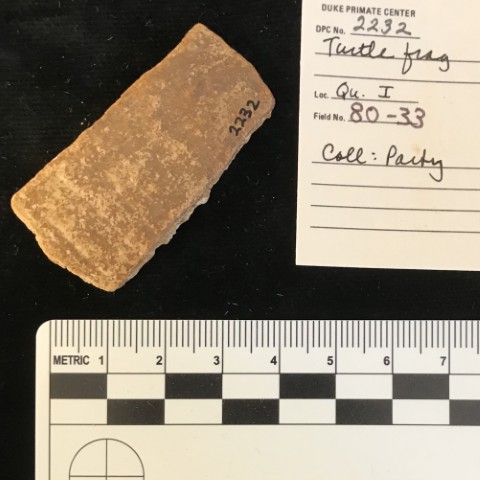 DUKE PRIMATE CENTER
DPC No. 2232
Turtle frag
Loc. Qu. I
Field No. 80-33
Coll: Party
2232
METRIC 1 2 3 4 5 6 7